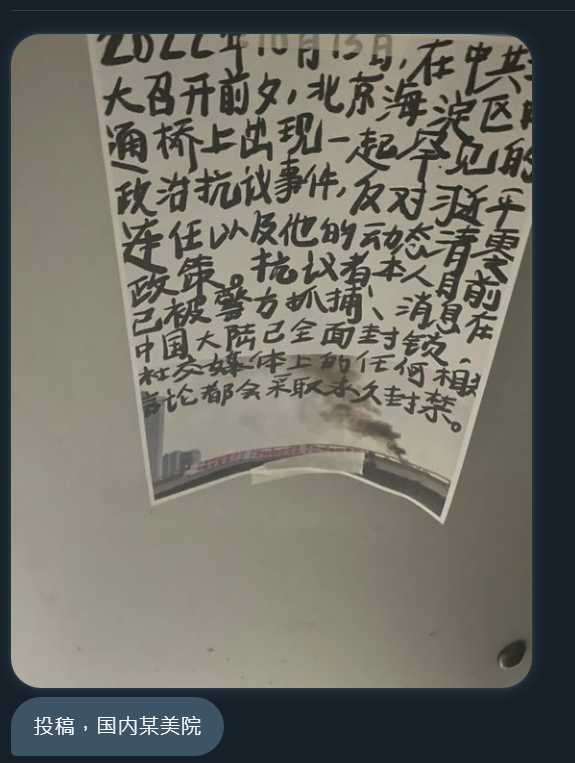 2022年10月13日,在中共
大召开前夕,北京海淀区
通桥上出现一起罕见的
政治抗议事件,反对习近平
连任以及他的动态清零
政策。抗议者本人目前
已被警方抓捕、消息在
中国大陆已全面封锁,
社交媒体上的任何相
言论都会采取永久封禁。
投稿，国内某美院